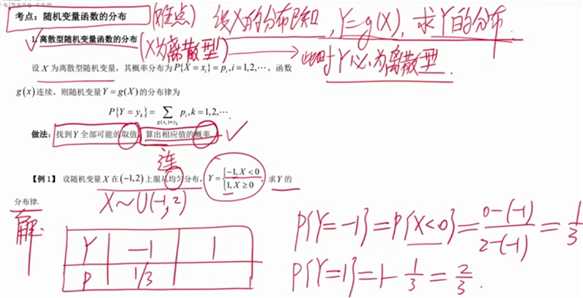 考点：随机变量函数的分布 (难点) 给X的分布已知, Y=g(X), 求Y的分布.
1. 离散型随机变量函数的分布 (X为离散型) 此时Y必为离散型.
设 X 为离散型随机变量，其概率分布为 P{X = x_i} = p_i, i = 1, 2, ⋯，函数
g(x) 连续，则随机变量 Y = g(X) 的分布律为
P{Y = y_k} = ∑_{g(x_i)=y_k} p_i, k = 1, 2, ⋯.
做法：找到 Y 全部可能的取值，算出相应值的概率 ✓
连
【例1】 设随机变量 X 在 (−1, 2) 上服从均匀分布，Y = { −1, X < 0; 1, X ≥ 0 ，求 Y 的
分布律.
X ~ U(-1, 2)
解:
Y -1 1
P 1/3
P{Y=-1} = P{X<0} = (0-(-1))/(2-(-1)) = 1/3
P{Y=1} = 1 - 1/3 = 2/3.